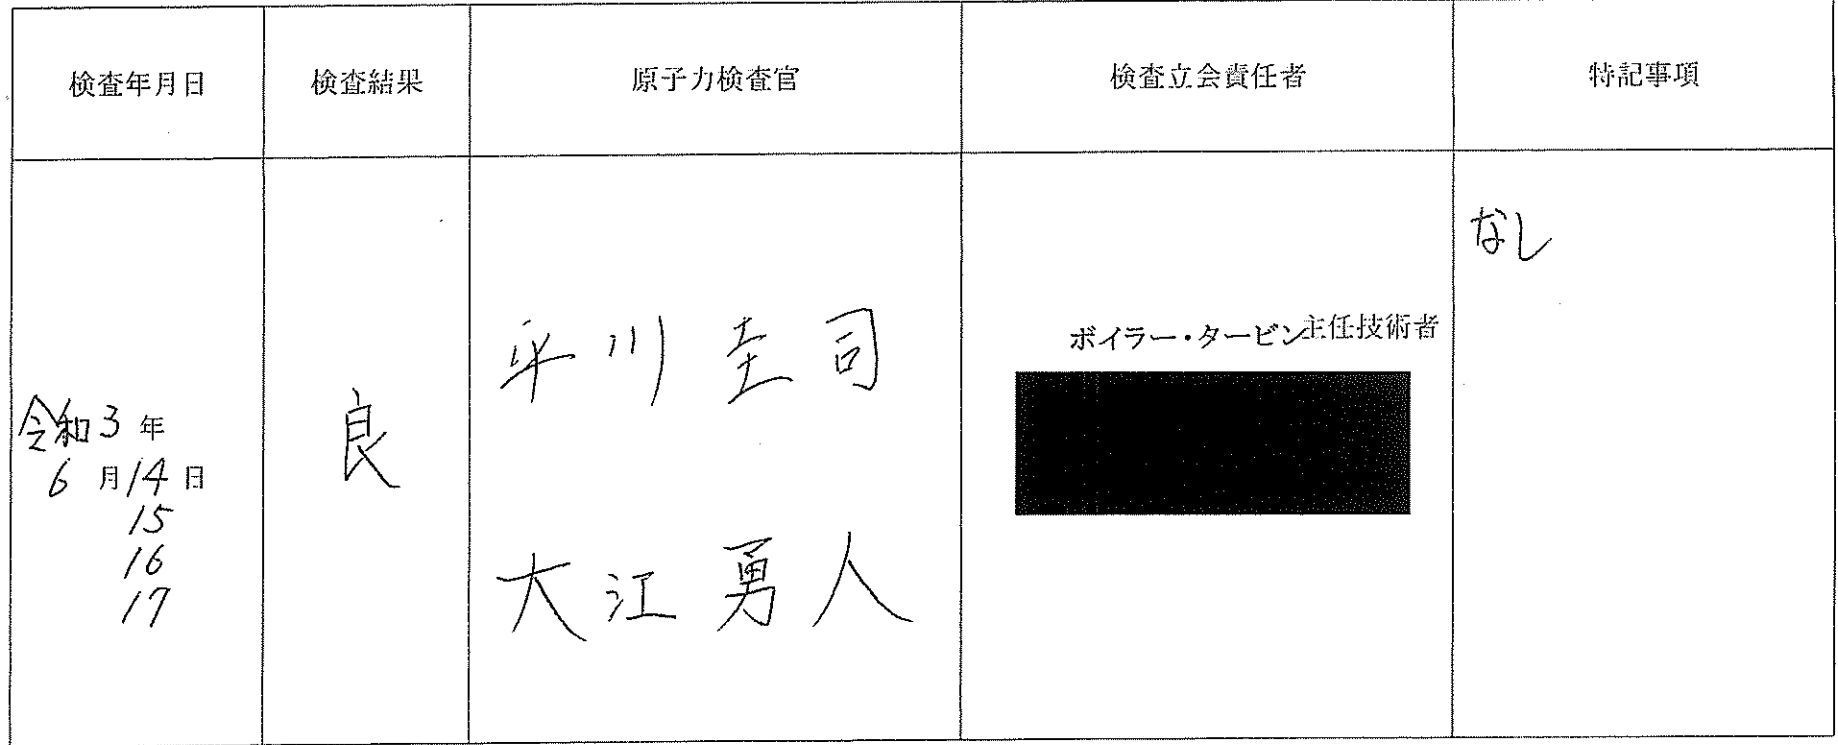 検査年月日
検査結果
原子力検査官
検査立会責任者
特記事項
令和3年
6月14日
15
16
17
良
平川圭司
大江勇人
ボイラー・タービン主任技術者
なし